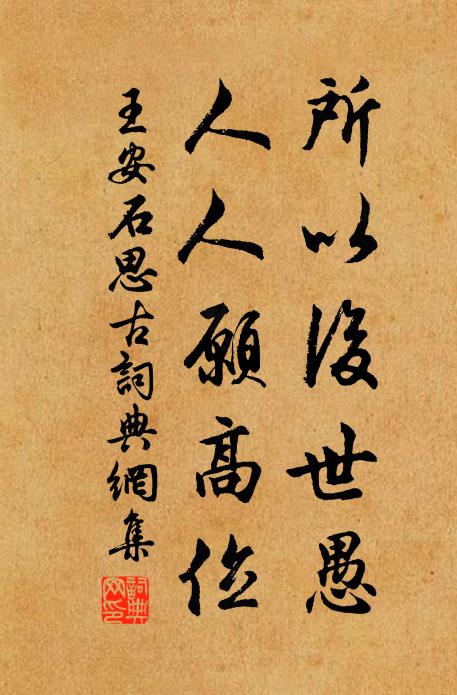 所以後世愚
人人願高位
王安石思古詞典網集
詞典网印